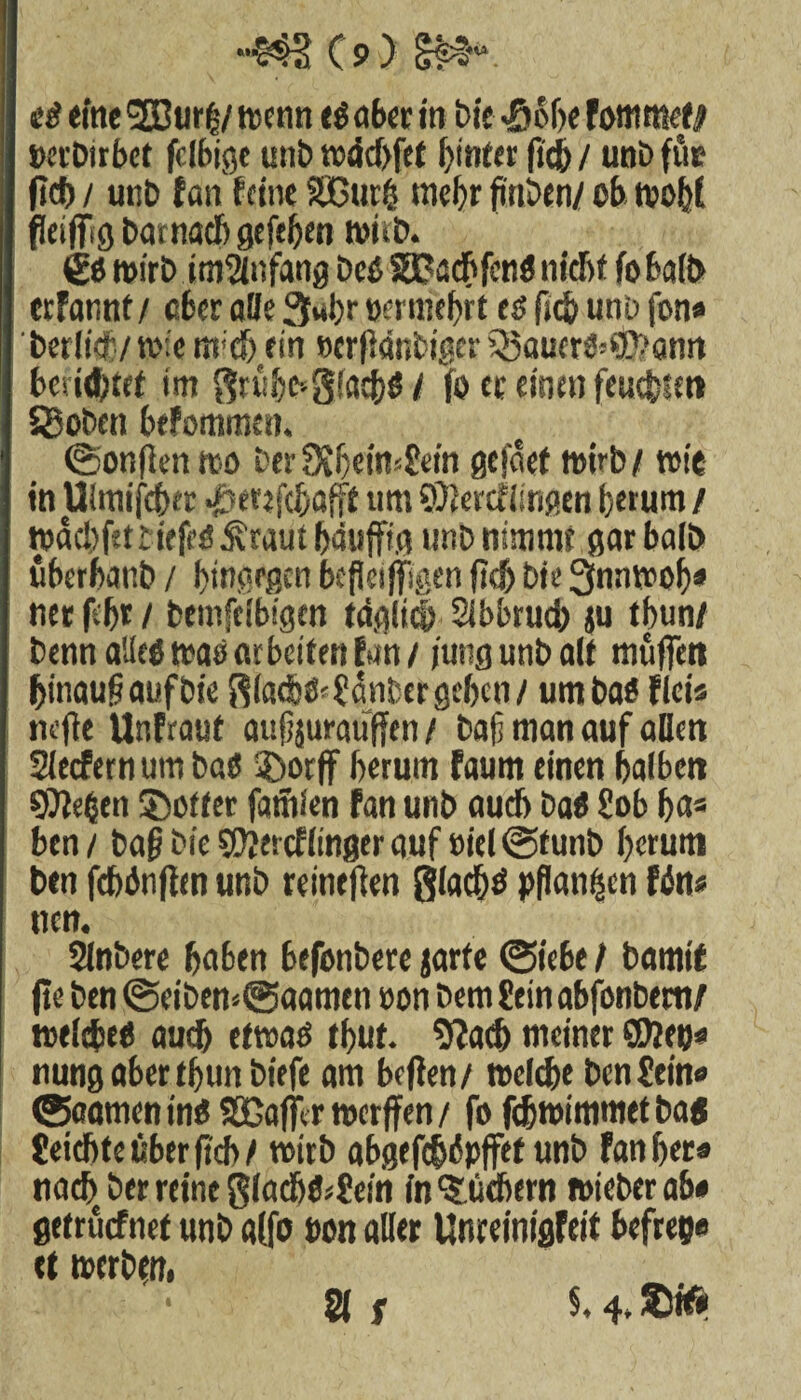 (9)
es eine Wurtz/ wenn es aber in die Höhe kommet/
verdirbet selbige und wächset hinter sich / und für
sich / und kan keine Wurtz mehr finden/ ob wohl
fleissig darnach gesehen wird.
Es wird im Anfang des Wachsens nicht so bald
erkannt / aber alle Jahr vermehrt es sich und son-
derlich/ wie mich ein verständiger Bauers-Mann
berichtet im Frühe-Flachs / so er einen feuchten
Boden bekommen.
Sonsten wo der Rhein-Lein gesäet wird/ wie
in Ulmischer Herrschafft um Mercklingen herum /
wächset dieses Kraut häuffig und nimmt gar bald
überhand / hingegen befleissigen sich die Innwoh-
ner sehr / demselbigen täglich Abbruch zu thun/
denn alles was arbeiten kan / jung und alt müssen
hinauß auf die Flachs-Länder gehen / um das klei-
neste Unkraut außzurauffen / daß man auf allen
Aeckern um das Dorff herum kaum einen halben
Metzen Dotter samlen kan und auch das Lob ha-
ben / daß die Mercklinger auf viel Stund herum
den schönsten und reinesten Flachs pflantzen kön-
nen.
Andere haben besondere zarte Siebe / damit
sie den Seiden-Saamen von dem Lein absondern/
welches auch etwas thut. Nach meiner Mey-
nung aber thun diese am besten/ welche den Lein-
Saamen ins Wasser werffen / so schwimmet das
Leichte über sich / wird abgeschöpffet und kan her-
nach der reine Flachs-Lein in Tüchern wieder ab-
getrücknet und also von aller Unreinigkeit befrey-
et werden.
A 5 §. 4. Die